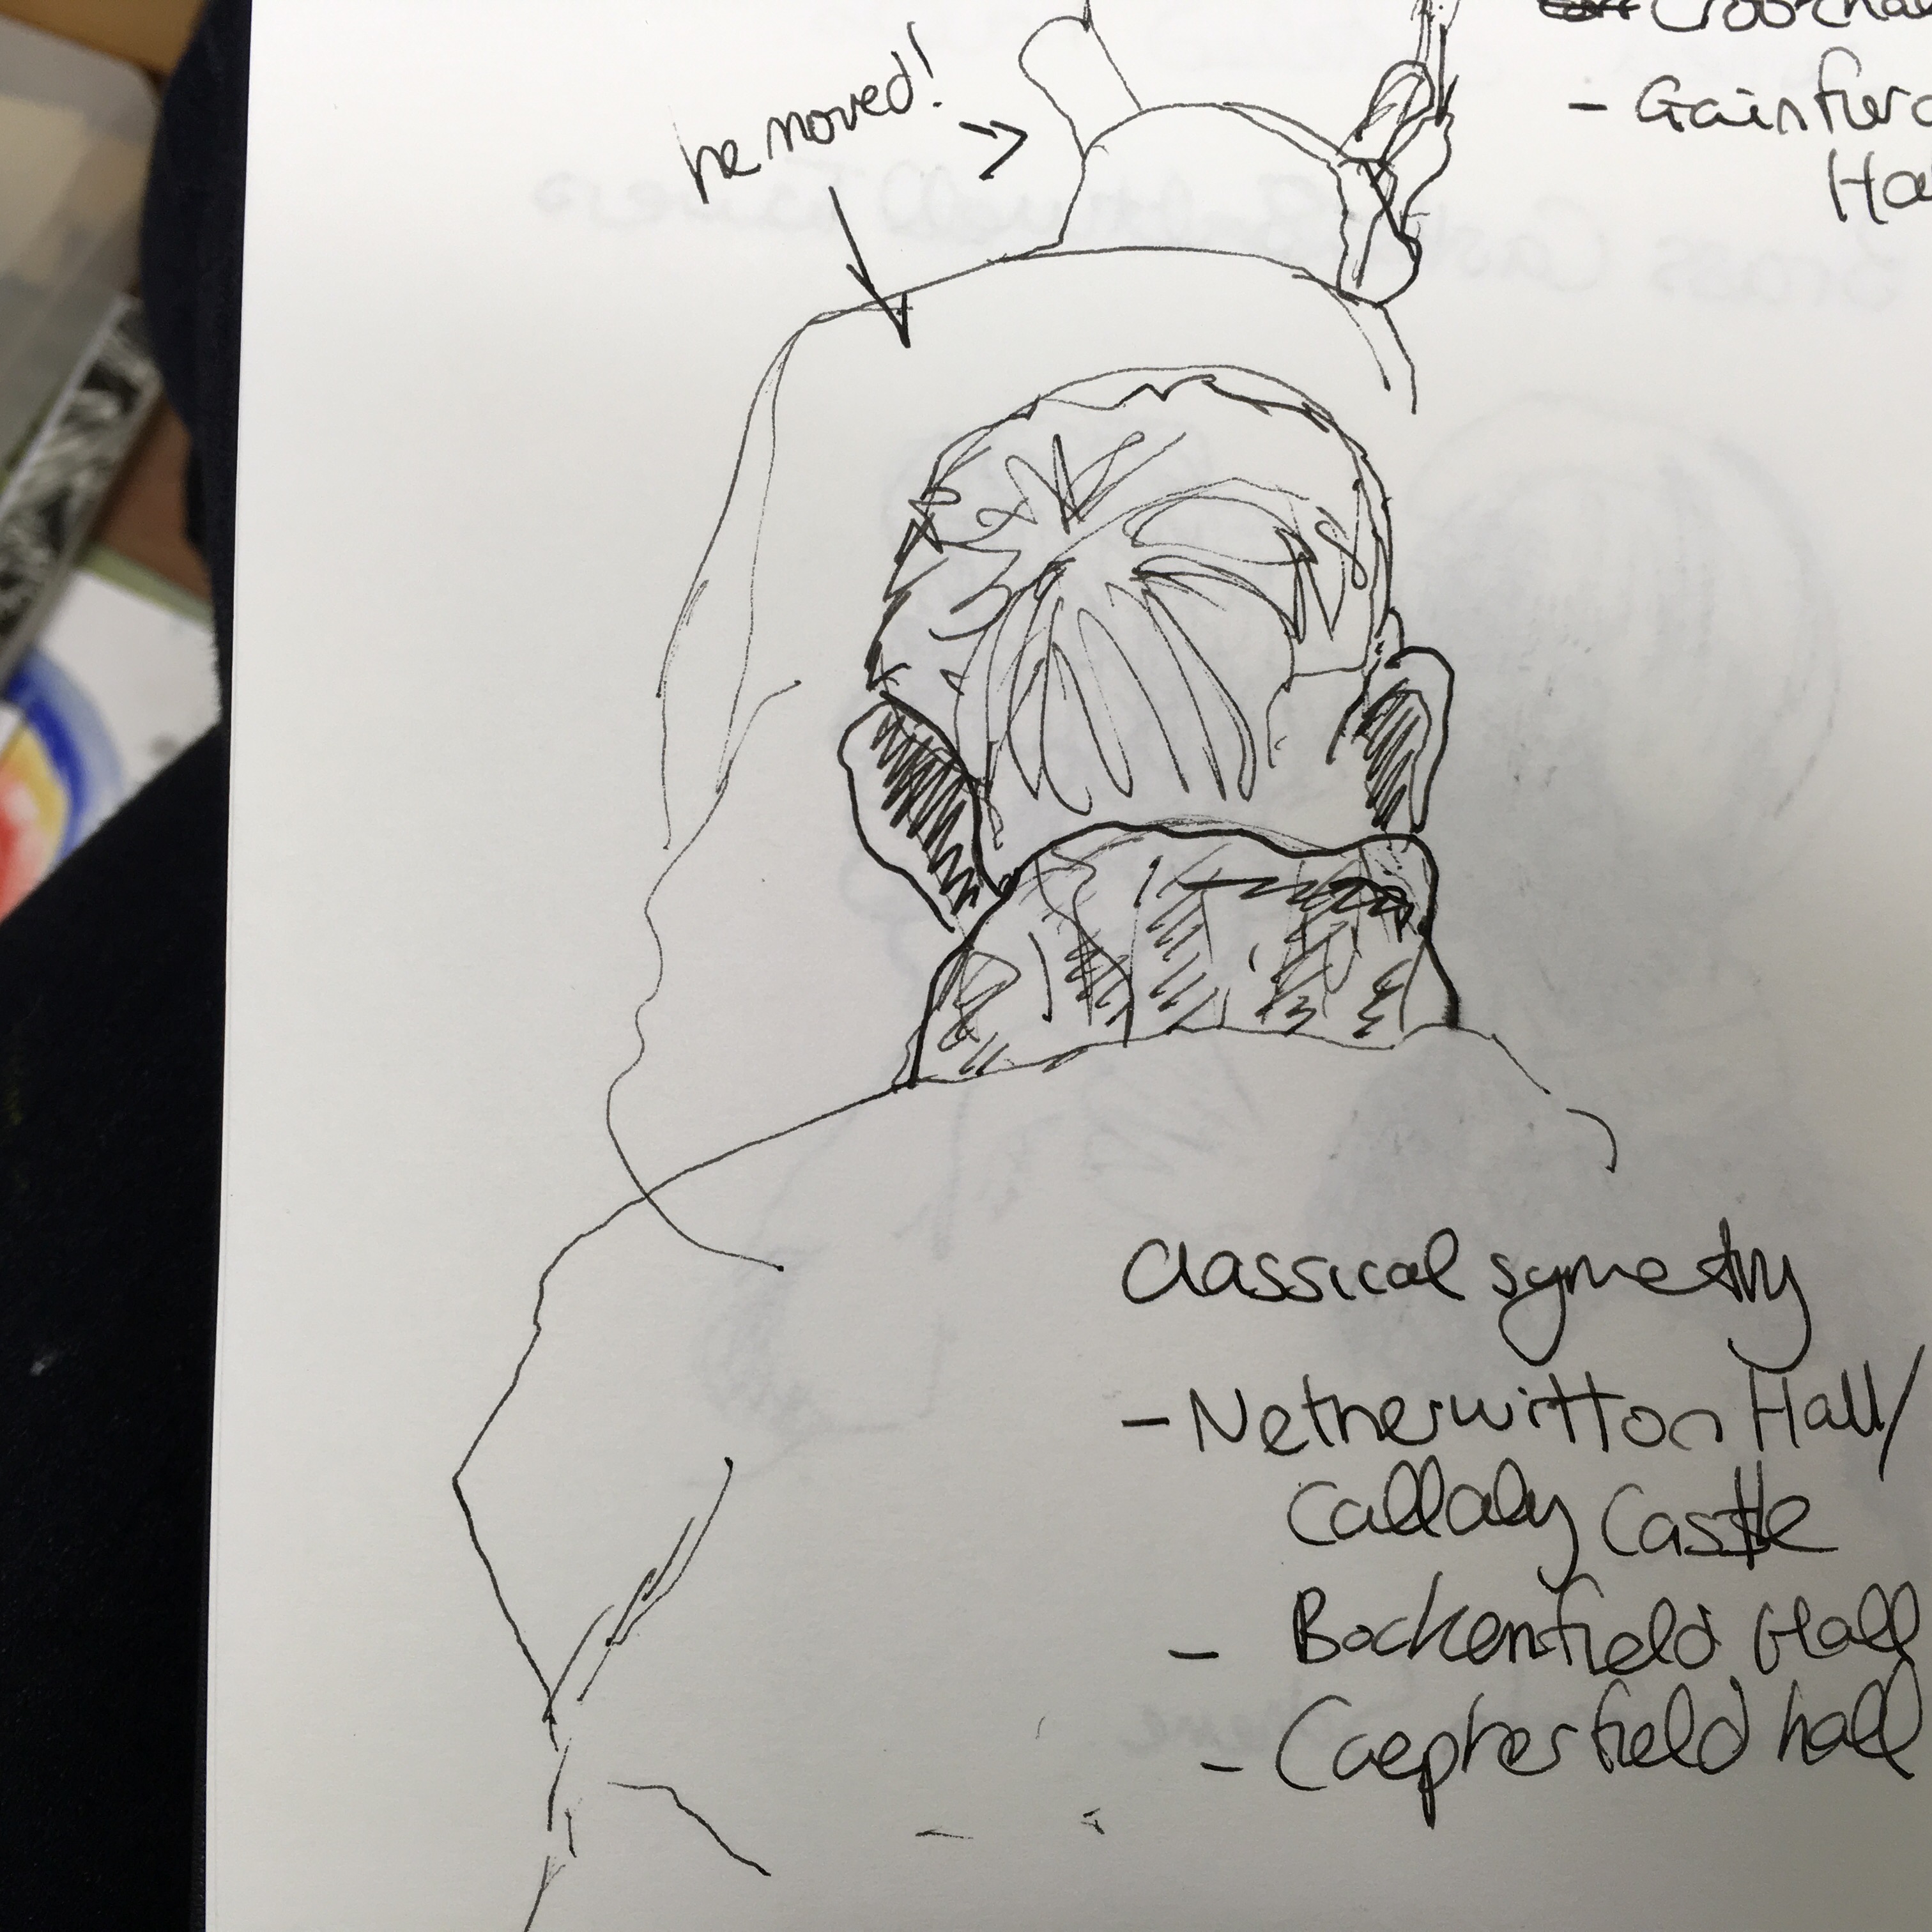 he moved!
- Gainford
Ha
Classical symetry
- Netherwitton Hall/
Callaly Castle
- Bockenfield Hall
- Caepherfield hall